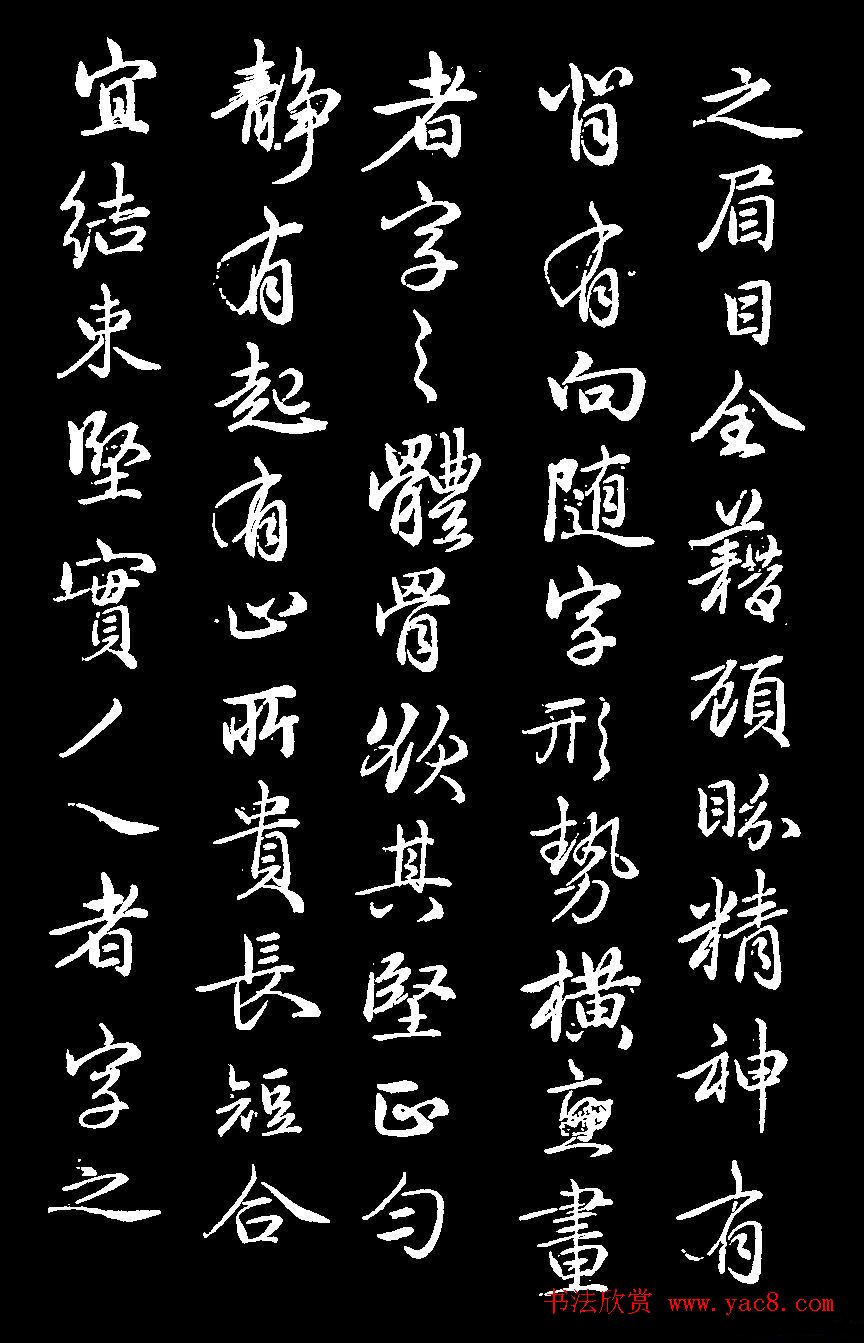 之眉目全藉顧盼精神有
背有向随字形勢橫直畫
者字之體骨欲其堅正勻
静有起有止所貴長短合
宜結束堅實丿乀者字之
书法欣赏 www.yac8.com